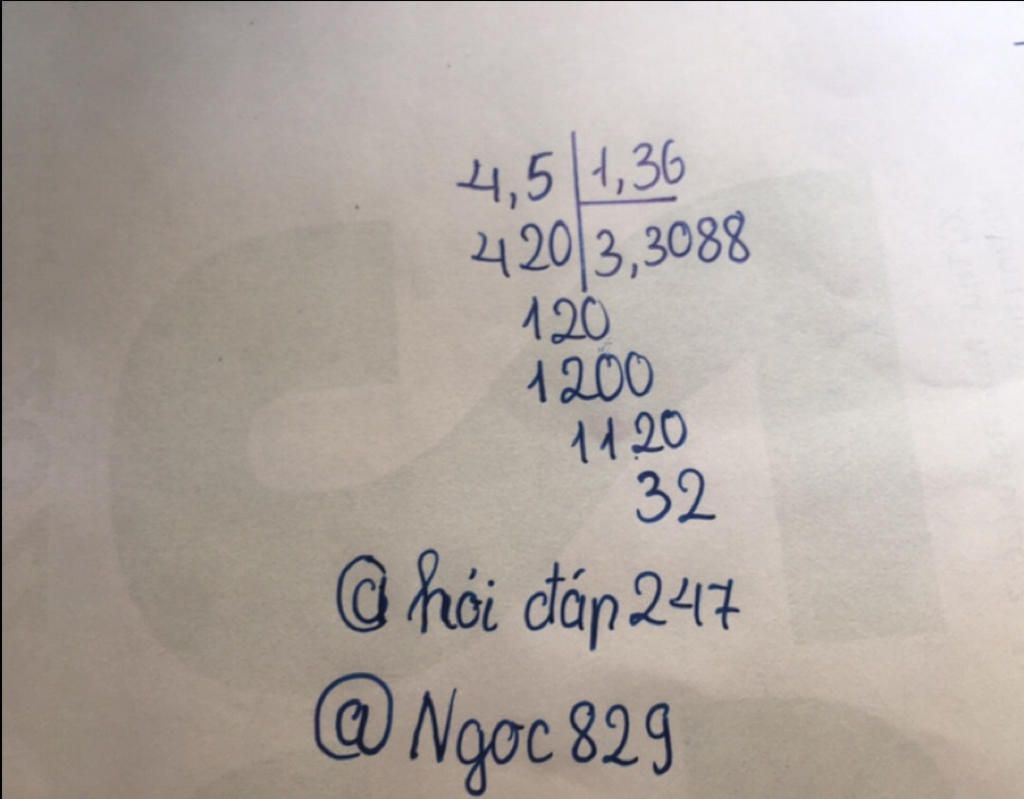 4,5 1,36
420 3,3088
120
1200
1120
32
@ hỏi đáp 247
@ Ngoc 829